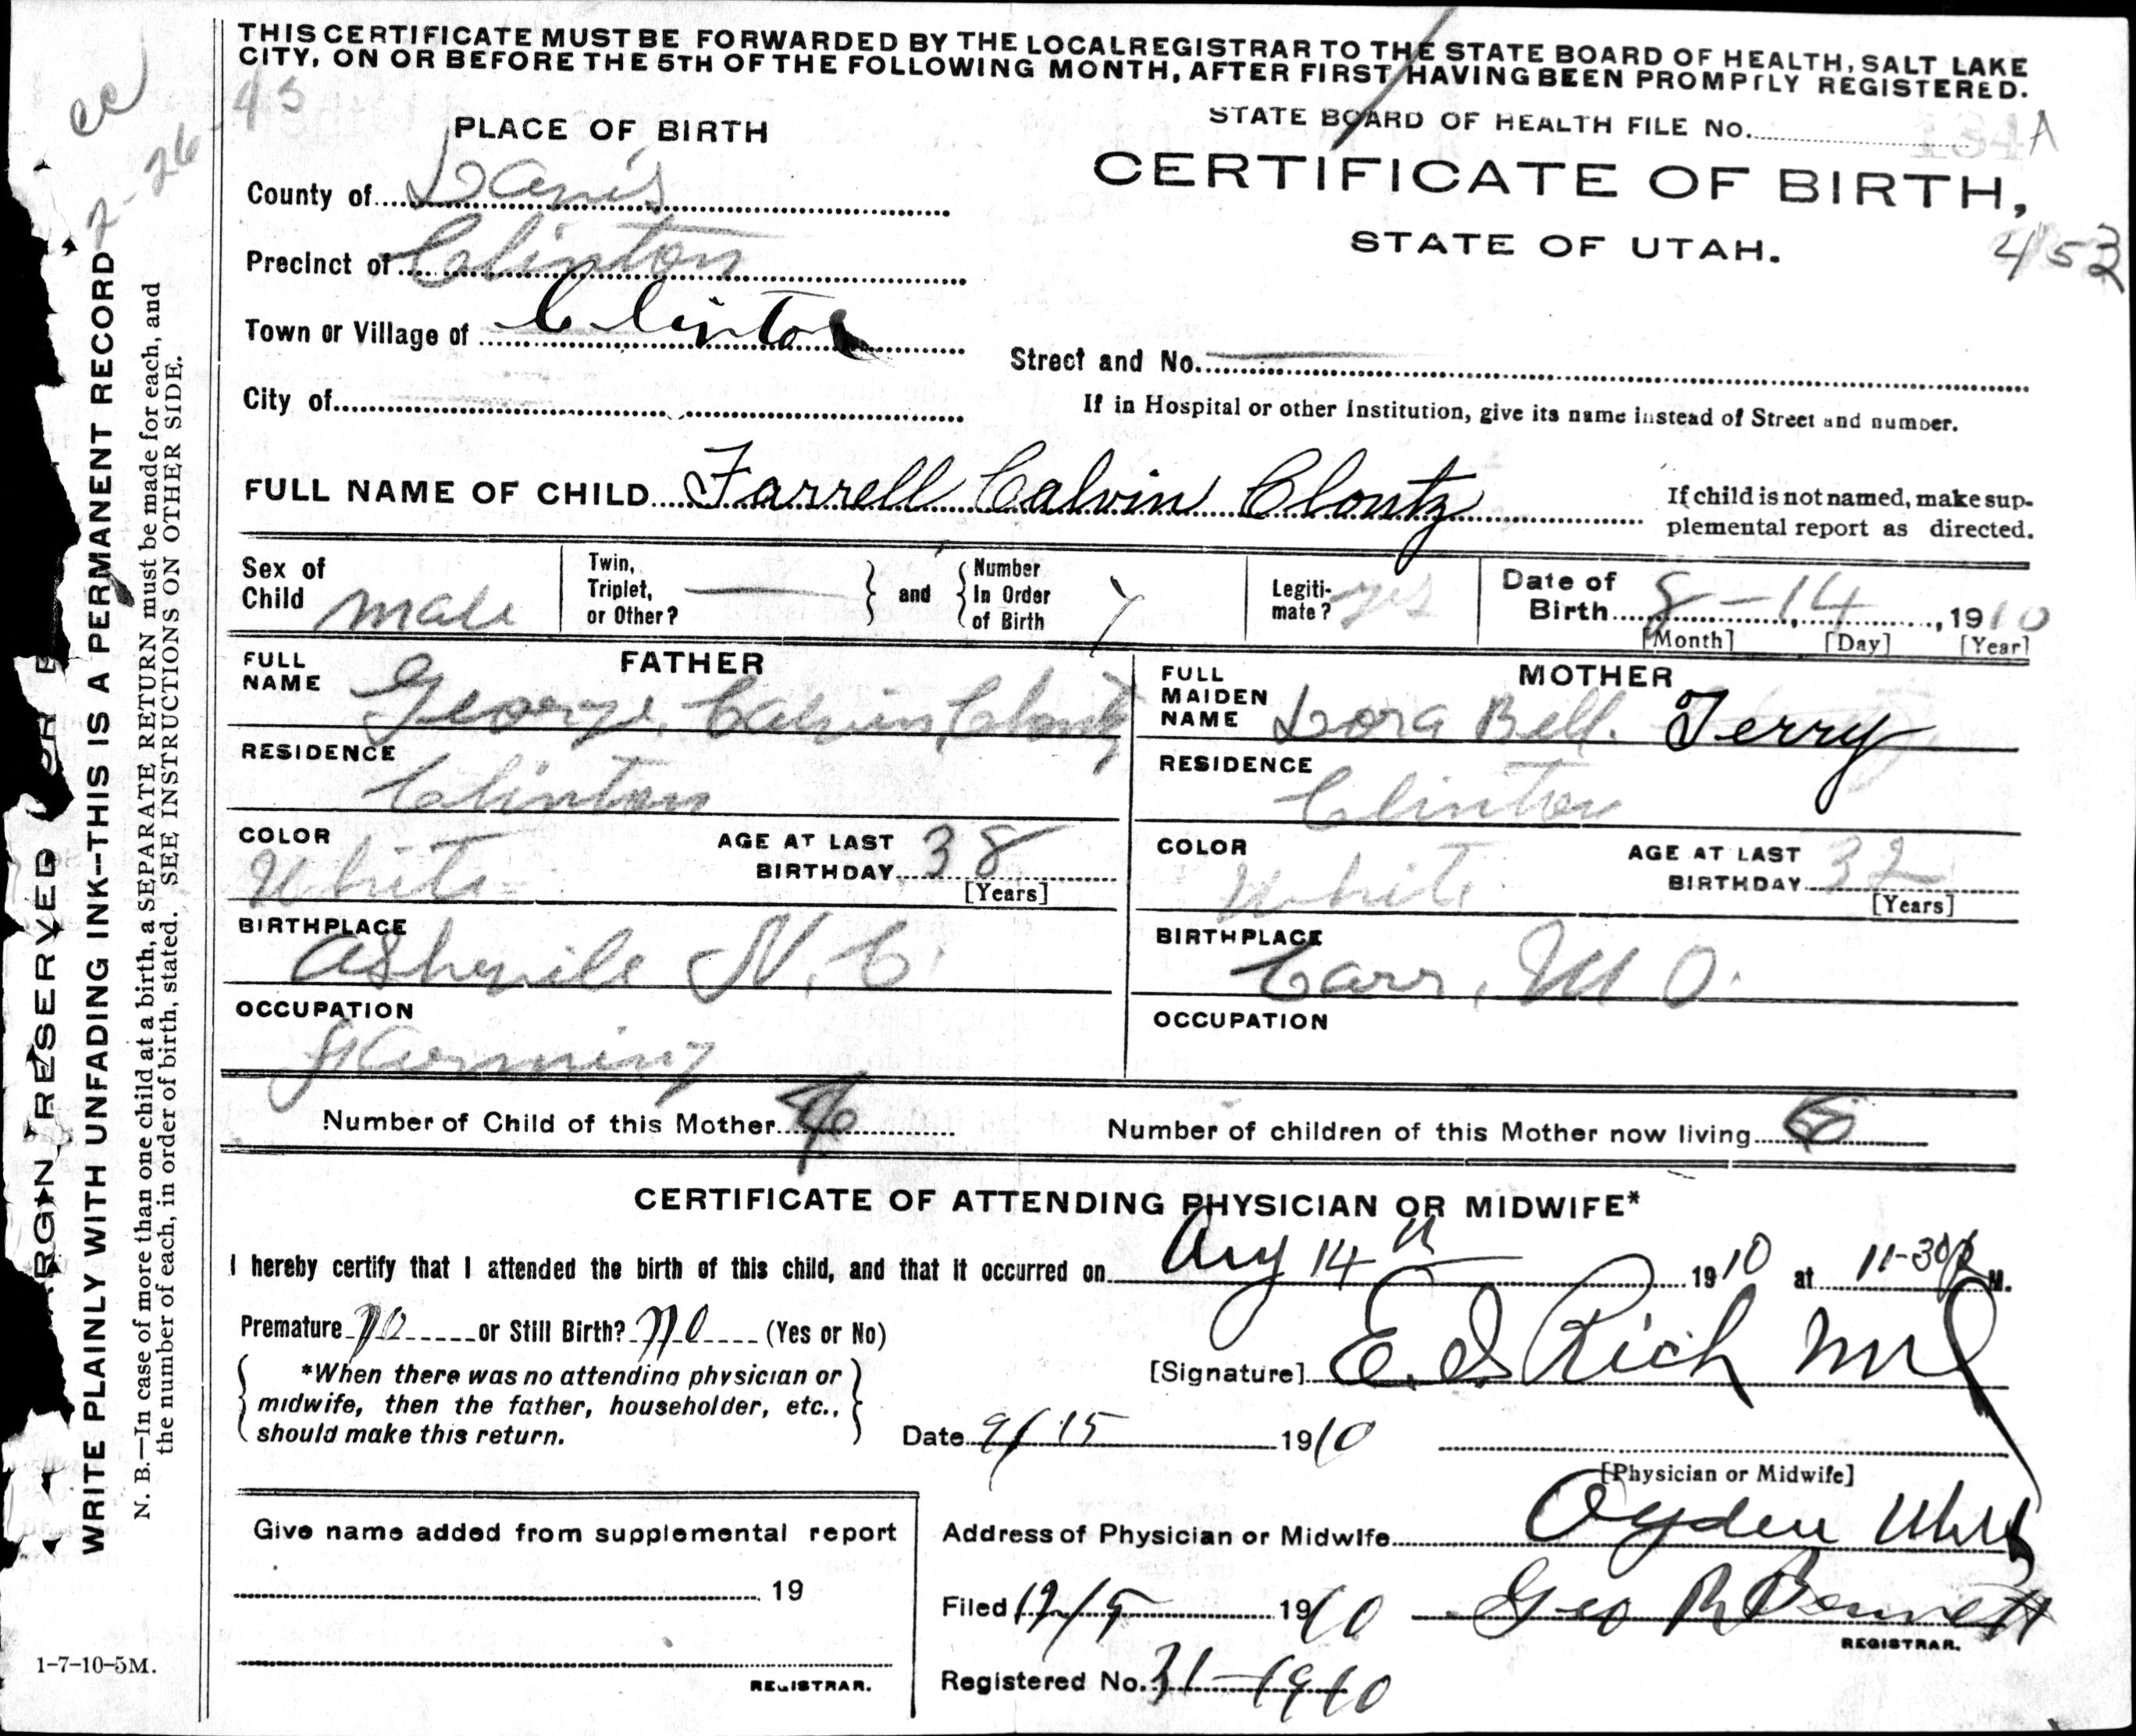 THIS CERTIFICATE MUST BE FORWARDED BY THE LOCAL REGISTRAR TO THE STATE BOARD OF HEALTH, SALT LAKE
CITY, ON OR BEFORE THE 5TH OF THE FOLLOWING MONTH, AFTER FIRST HAVING BEEN PROMPTLY REGISTERED.
STATE BOARD OF HEALTH FILE No. 134 A
PLACE OF BIRTH
CERTIFICATE OF BIRTH,
STATE OF UTAH.
453
County of Davis
Precinct of Clinton
Town or Village of Clinton
Street and No.
City of
If in Hospital or other Institution, give its name instead of Street and number.
FULL NAME OF CHILD Farrell Calvin Clontz
If child is not named, make sup-
plemental report as directed.
Sex of Child male
Twin, Triplet, or Other?
and
Number In Order of Birth 7
Legiti-mate? yes
Date of Birth 8-14, 1910
[Month] [Day] [Year]
FATHER
FULL NAME George Calvin Clontz
MOTHER
FULL MAIDEN NAME Dora Bell. Terry
RESIDENCE Clinton
RESIDENCE Clinton
COLOR White
AGE AT LAST BIRTHDAY 38
[Years]
COLOR White
AGE AT LAST BIRTHDAY 32
[Years]
BIRTHPLACE Ashevile N.C.
BIRTHPLACE Carr, MO.
OCCUPATION
OCCUPATION
Number of Child of this Mother
Number of children of this Mother now living
CERTIFICATE OF ATTENDING PHYSICIAN OR MIDWIFE*
I hereby certify that I attended the birth of this child, and that it occurred on Aug 14th 1910 at 11-30 p M.
Premature no or Still Birth? no (Yes or No)
*When there was no attending physician or
midwife, then the father, householder, etc.,
should make this return.
[Signature] E. I. Rich MD
Date 9/15 1910
[Physician or Midwife]
Give name added from supplemental report
Address of Physician or Midwife Ogden Utah
19
Filed 12/5 1910 Geo R Bennett
REGISTRAR.
Registered No. 31-1910
REGISTRAR.
1-7-10-5M.
MARGIN RESERVED FOR
WRITE PLAINLY WITH UNFADING INK--THIS IS A PERMANENT RECORD
N. B.—In case of more than one child at a birth, a SEPARATE RETURN must be made for each, and
the number of each, in order of birth, stated. SEE INSTRUCTIONS ON OTHER SIDE.